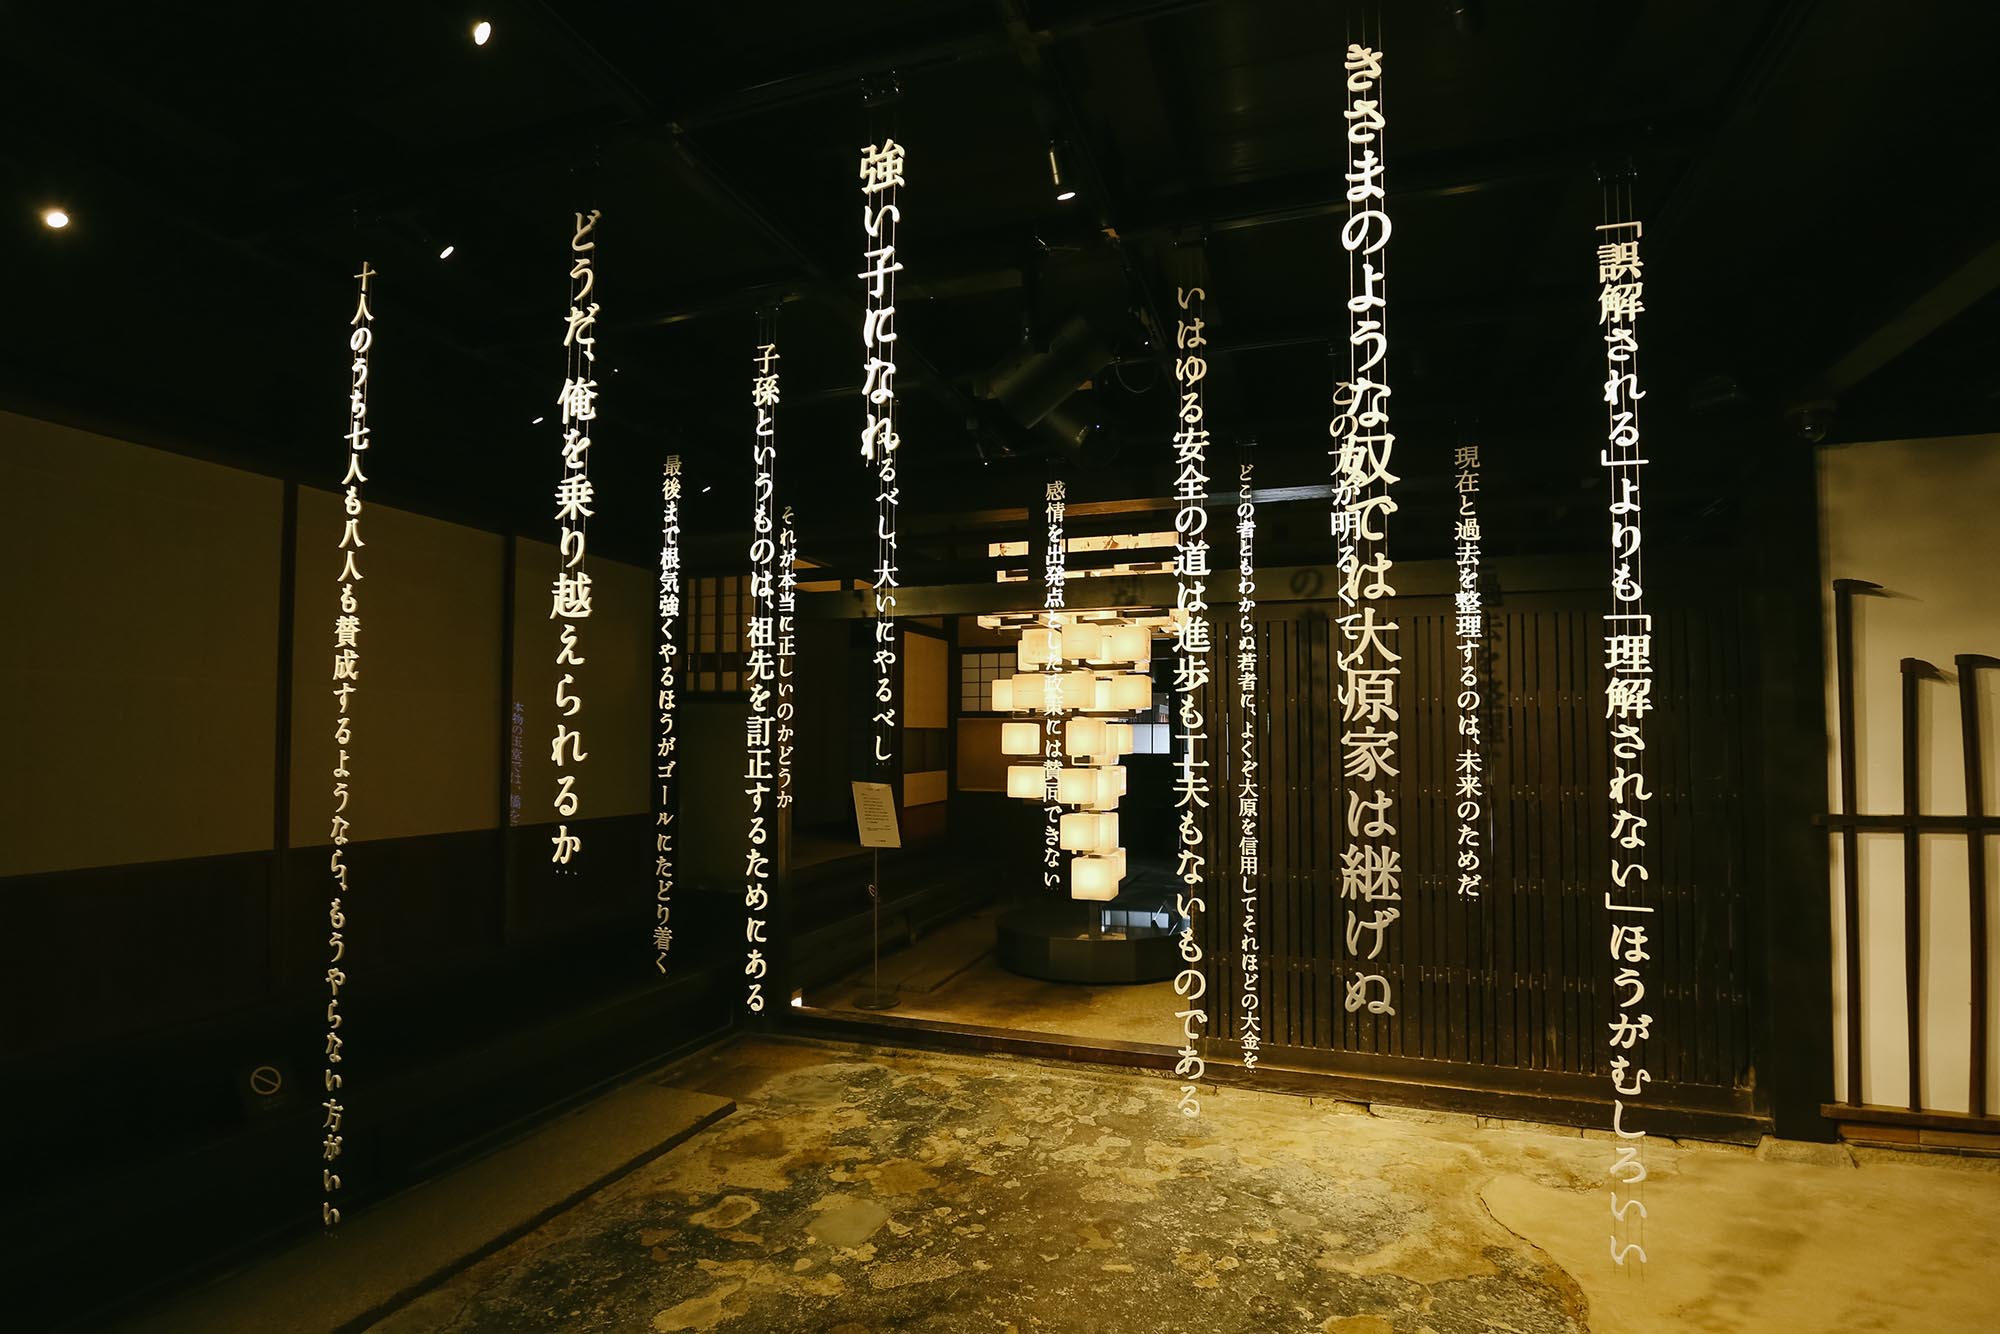 「誤解される」よりも「理解されない」ほうがむしろいい
現在と過去を整理するのは、未来のためだ…
きさまのような奴では大原家は継げぬ
この方が明るくていい
どこの者ともわからぬ若者に、よくぞ大原を信用してそれほどの大金を…
いはゆる安全の道は進歩も工夫もないものである
感情を出発点とした政策には賛同できない
強い子になれ
るべし、大いにやるべし…
それが本当に正しいのかどうか
子孫というものは、祖先を訂正するためにある
最後まで根気強くやるほうがゴールにたどり着く
どうだ、俺を乗り越えられるか…
本物の玉堂では、橋を
十人のうち七人も八人も賛成するようなら、もうやらない方がいい